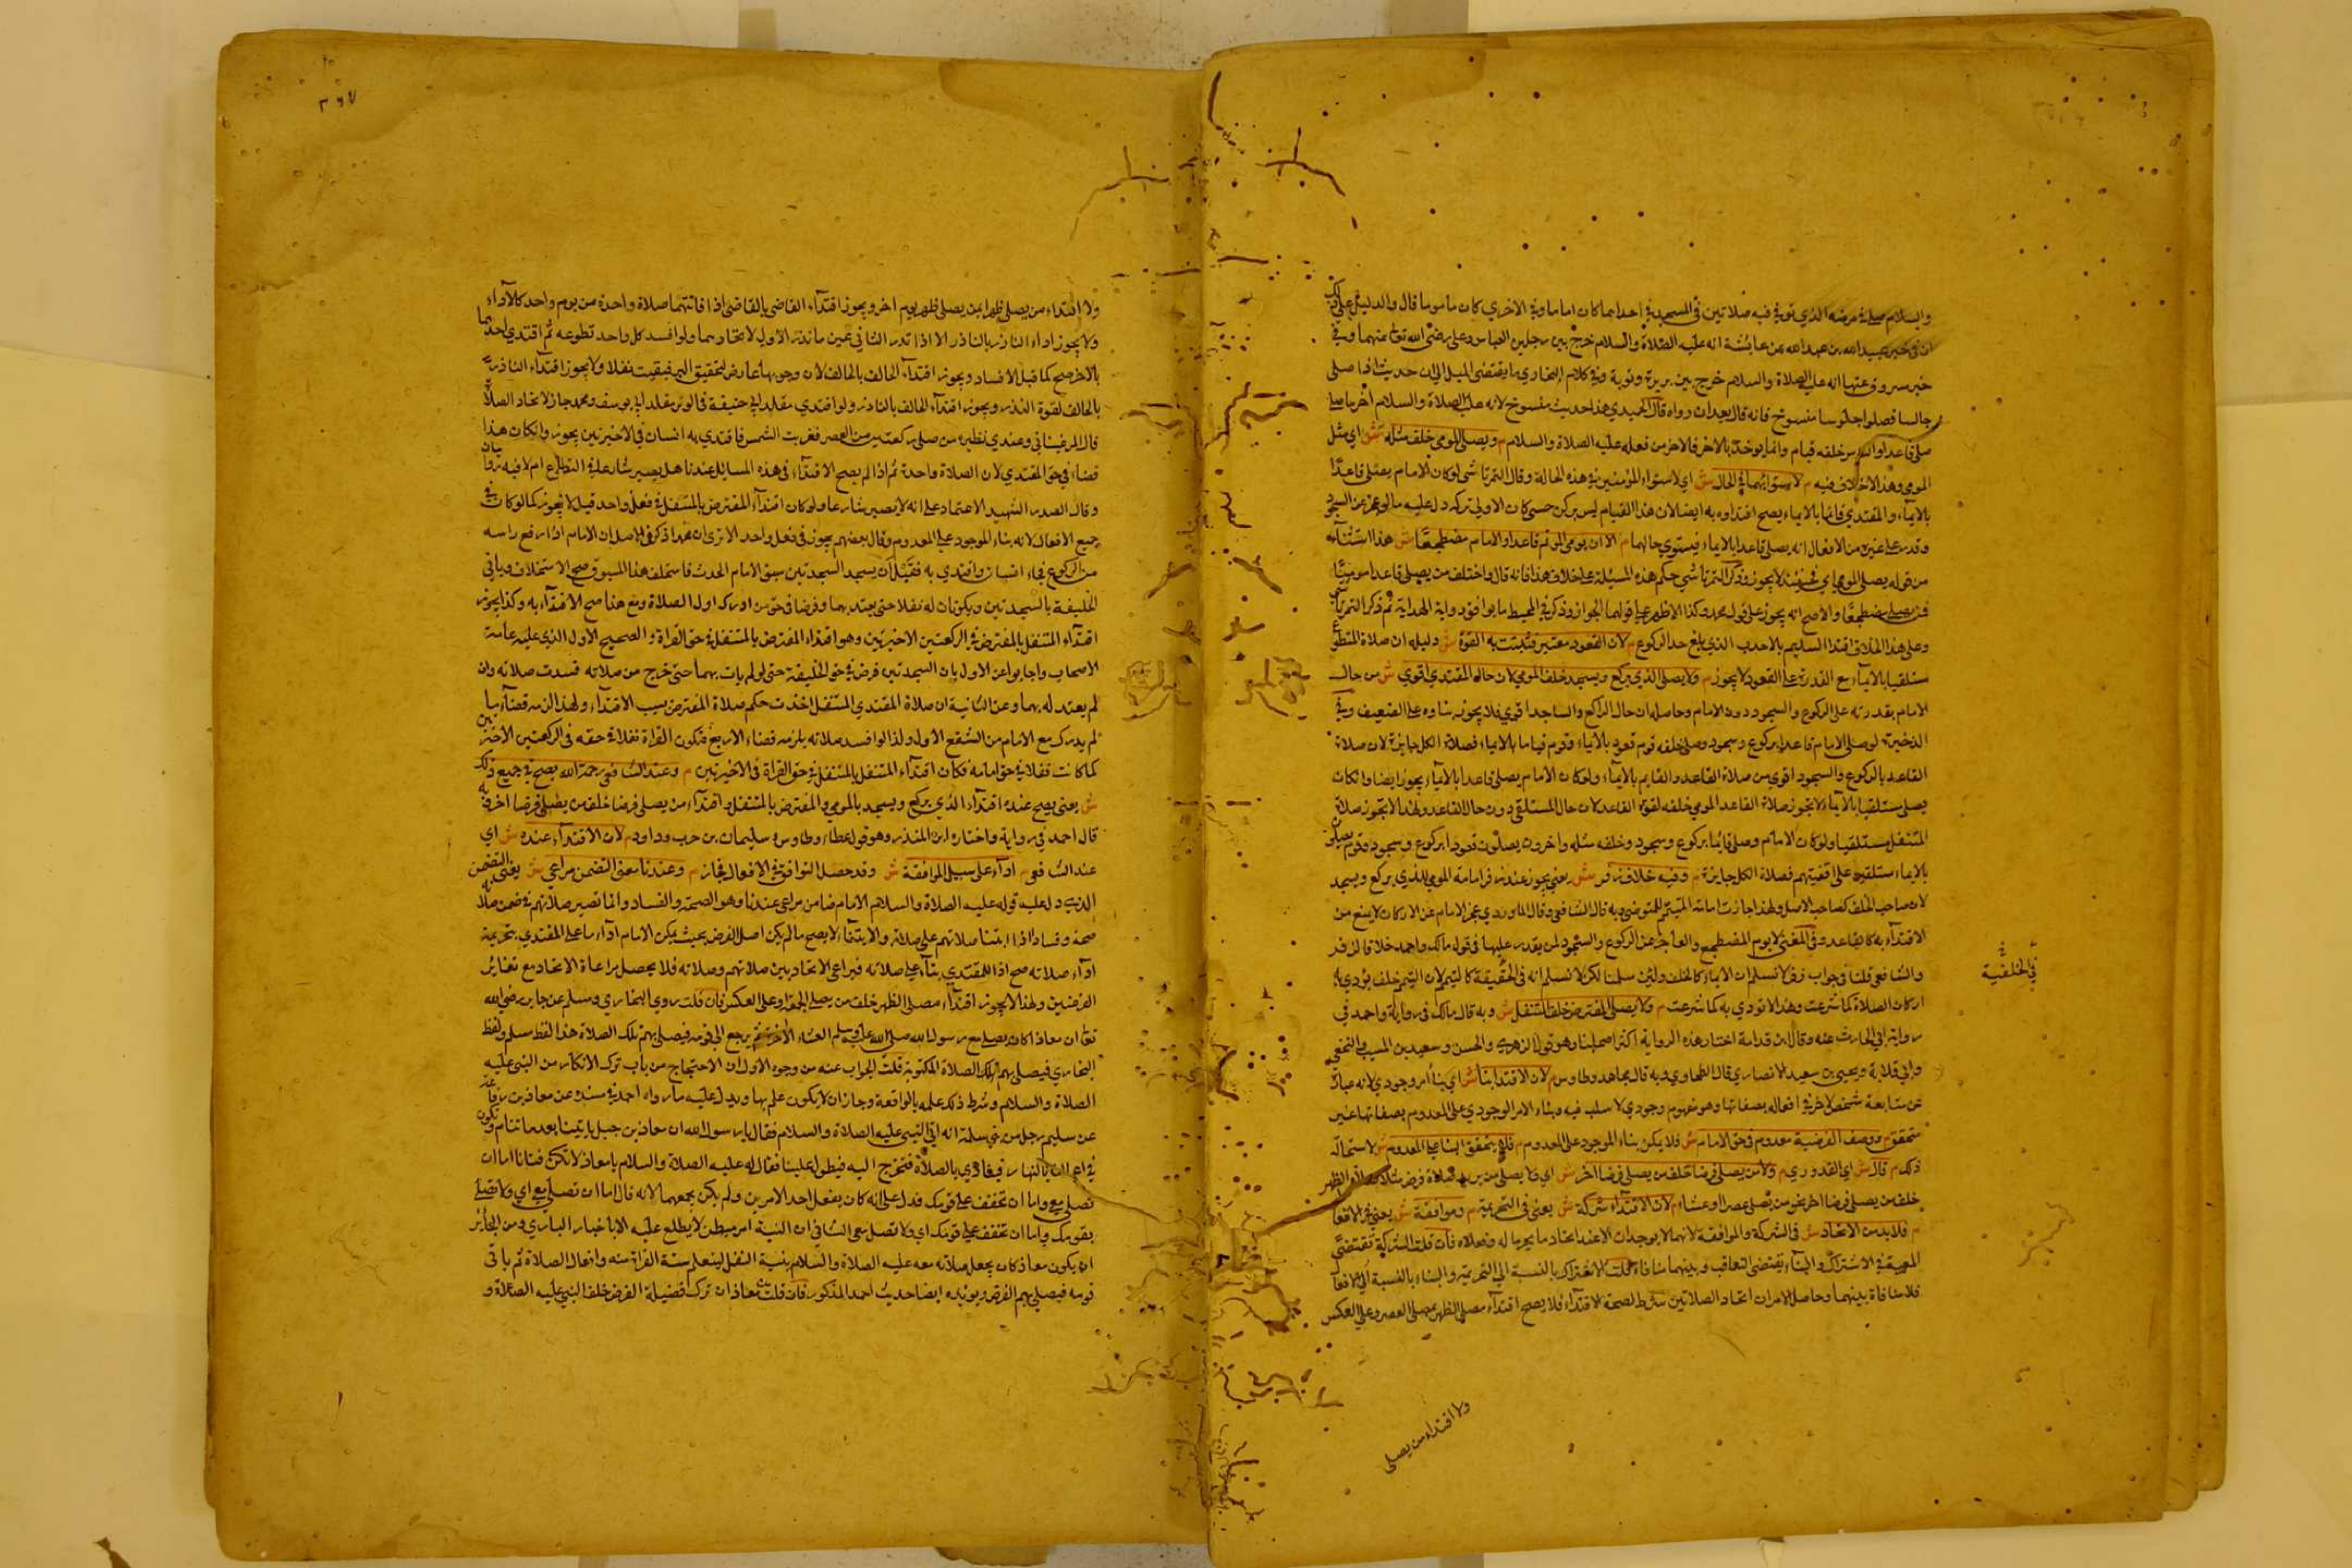 والسلام صلى في مرضه الذي توفي فيه صلاتين في المسجد في احداهما كان اماما وفي الاخري كان ماموما قال والدليل على ذلك
ان في خبر عبيد الله بن عبد الله عن عايشة انه عليه الصلاة والسلام خرج بين رجلين العباس وعلى رضى الله تعالى عنهما وفي
خبر مسروق عنها انه عليه الصلاة والسلام خرج بين بريرة ونوبة وفي كلام البخاري ما يقتضى الميل الى ان حديث اذا صلى
جالسا فصلوا جلوسا منسوخ فانه قال بعد ان رواه قال الحميدي هذا حديث منسوخ لانه عليه الصلاة والسلام آخر ما صلى
صلى قاعدا والناس خلفه قيام وانما يوخذ بالاخر فالاخر من فعله عليه الصلاة والسلام م ويصلى المومى خلف مثله ش اي مثل
المومى وهذا لاخلاف فيه م لاستوايهما في الحال ش اي لاستواء المؤمنين في هذه الحالة وقال التمرتاشى لو كان الامام يصلى قاعدًا
بالايماء والمقتدي قائما بالايماء يصح اقتداوه به ايضا لان هذا القيام ليس بركن حتى كان الاولى تركه دل عليه ما لو عجز عن السجود
وقدر على غيره من الافعال انه يصلى قاعدا بالايماء فيستوي حالهما م الا ان يومى الموتم قاعدا والامام مضطجعًا ش هذا استثناء
من قوله يصلى المومى اي فحينئذ لا يجوز وذكر التمرتاشي حكم هذه المسئلة على خلاف هذا فانه قال واختلف من يصلى قاعدا موميًا
فمن يصلى مضطجعًا والاصح انه يجوز على قول محمد وكذا الاظهر على قولهما الجواز وذكر في المحيط ما يوافق رواية الهداية ثم ذكر التمرتاشي
وعلى هذا الخلاف اقتدا السليم بالاحدب الذي بلغ حد الركوع م لان القعود معتبر فتثبت به القوة ش دليله ان صلاة المتطوع
مستلقيا بالايماء مع القدرة على القعود لا يجوز م ولا يصلى الذي يركع ويسجد خلف المومى لان حالة المقتدي اقوي ش من حال
الامام بقدرته على الركوع والسجود دون الامام وحاصله ان حال الراكع والساجد اقوي فلا يجوز بناوه على الضعيف وفي
الذخيرة لو صلى الامام قاعدا بركوع وسجود وصلى خلفه قوم قعود بالايماء وقوم قياما بالايماء فصلاة الكل جايزة لان صلاة
القاعد بالركوع والسجود اقوي من صلاة القاعد والقايم بالايماء ولو كان الامام يصلى قاعدا بالايماء يجوز ايضا وان كان
يصلى مستلقيا بالايماء لا يجوز صلاة القاعد المومى خلفه لقوة القاعد لان حال المستلقى دون حال القاعد ولهذا لا يجوز صلاة
المتنفل مستلقيا ولو كان الامام وصلى قائما بركوع وسجود وخلفه مثله واخرون يصلون قعودا بركوع وسجود وقوم يصلون
بالايماء مستلقين على اقفيتهم فصلاة الكل جايزة م وفيه خلاف زفر ش يعنى يجوز عند زفر امامة المومى للذي يركع ويسجد
لان صاحب الخلف كصاحب الاصل ولهذا جازت امامة المتيمم للمتوضى وبه قال الشافعى وقال الماوردي عجز الامام عن الاركان لا يمنع من
الاقتداء به كالقاعد وفي المغنى لا يوم المضطجع والعاجز عن الركوع والسجود لمن يقدر عليها في قول مالك واحمد خلافا لزفر
والشافعى قلنا في جواب زفر لا نسلم ان الايماء كالخلف ولئن سلمنا لكن لا نسلم انه في الحقيقة كالتيمم لان التيمم خلف يؤدي به
اركان الصلاة كما شرعت وهذا لا تودي به كما شرعت م ولا يصلى المفترض خلف المتنفل ش وبه قال مالك في رواية واحمد في
رواية ابى الحارث عنه وقال ابن قدامة اختار هذه الرواية اكثر اصحابنا وهو قول الزهري والحسن وسعيد بن المسيب والنخعي
وابي قلابة ويحيى بن سعيد الانصاري قال الطحاوي وبه قال مجاهد وطاوس م لان الاقتدا بنا ش اي بنا أمر وجودي لانه عبارة
عن متابعة شخص لاخر في افعاله بصفاتها وهو مفهوم وجودي لا سلب فيه وبناء الامر الوجودي على المعدوم بصفاتها غير
متحقق م ووصف الفرضية معدوم في حق الامام ش فلا يمكن بناء الموجود على المعدوم م فلا يتحقق البنا على المعدوم ش لاستحالة
ذلك م قال ش اي القدوري م ولا من يصلى فرضا خلف من يصلى فرضا اخر ش اي ولا يصلى من يريد صلاة فرض مثلا كصلاة الظهر
خلف من يصلى فرضا اخر نحو من يصلى عصرا او عشاء م لان الاقتداء شركة ش يعنى في التحريمة م وموافقة ش يعنى في الافعال
م فلا بد من الاتحاد ش في الشركة والموافقة لانهما لا يوجدان الا عند اتحاد ما يحرما له وفعلاه فان قلت الشركة تقتضى
المعية في الاشتراك والبناء يقتضى التعاقب وبينهما منافاة قلت الاشتراك بالنسبة الى التحريمة والبناء بالنسبة الى الافعال
فلا منافاة بينهما وحاصل الامر ان اتحاد الصلاتين شرط لصحة الاقتداء فلا يصح اقتداء مصلى الظهر بمصلى العصر وعلى العكس
في الخلفية
ولا اقتداء من يصلى
ولا اقتداء من يصلى ظهرا بمن يصلى ظهر يوم اخر ويجوز اقتداء القاضى بالقاضى اذا فاتتهما صلاة واحدة من يوم واحد كالاداء
ولا يجوز اداء الناذر بالناذر الا اذا نذر الثانى عين ما نذر الاول لاتحادهما ولو افسد كل واحد تطوعه ثم اقتدي احدهما
بالاخر صح كما قبل الافساد ويجوز اقتداء الحالف بالحالف لان وجوبها عارض لتحقيق البر فبقيت نفلا ولا يجوز اقتداء الناذر
بالحالف لقوة النذر ويجوز اقتداء الحالف بالناذر ولو اقتدي مقلد ابى حنيفة في الوتر مقلد ابى يوسف ومحمد جاز لاتحاد الصلاة
قال المرغينانى وعندي نظيره من صلى ركعتين من العصر فغربت الشمس فاقتدي به انسان في الاخيرتين يجوز وان كان هذا
قضاء في حق المقتدي لان الصلاة واحدة ثم اذا لم يصح الاقتداء في هذه المسائل عندنا هل يصير شارعا في التطوع ام لا فيه روايتان
وقال الصدر الشهيد الاعتماد على انه لا يصير شارعا ولو كان اقتداء المفترض بالمتنفل في فعل واحد قيل لا يجوز كما لو كان في
جميع الافعال لانه بناء الموجود على المعدوم وقال بعضهم يجوز في فعل واحد الا تري ان محمدا ذكر في الاصل ان الامام اذا رفع راسه
من الركوع فجاء انسان واقتدي به فقبل ان يسجد السجدتين سبق الامام الحدث فاستخلف هذا المسبوق صح الاستخلاف وياتى
الخليفة بالسجدتين ويكونان له نفلا حتى يعتد بهما وفرضا في حق من ادرك اول الصلاة ومع هذا صح الاقتداء به وكذا يجوز
اقتداء المتنفل بالمفترض في الركعتين الاخيرتين وهو اقتداء المفترض بالمتنفل في حق القراة والصحيح الاول الذي عليه عامة
الاصحاب واجابوا عن الاول بان السجدتين فرض في حق الخليفة حتى لو لم يات بهما حتى خرج من صلاته فسدت صلاته وان
لم يعتد له بهما وعن الثانية ان صلاة المقتدي المتنفل اخذت حكم صلاة المفترض بسبب الاقتداء ولهذا لزمه قضاء ما
لم يدرك مع الامام من الشفع الاول ولذا لو افسد صلاته يلزمه قضاء الاربع فتكون القراة نفلا في حقه في الركعتين الاخيرتين
كما كانت نفلا في حق امامه فكان اقتداء المتنفل بالمتنفل في حق القراة في الاخيرتين م وعند الشافعى رحمه الله يصح في جميع ذلك
ش يعنى يصح عنده اقتداء الذي يركع ويسجد بالمومى والمفترض بالمتنفل واقتداء من يصلى فرضا خلف من يصلى فرضا اخر وبه
قال احمد في رواية واختاره ابن المنذر وهو قول عطاء وطاوس وسليمان بن حرب وداود م لان الاقتداء عنده ش اي
عند الشافعى م اداء على سبيل الموافقة ش وقد حصل التوافق في الافعال فجاز م وعندنا معنى التضمن مراعي ش يعنى التضمن
الذي دل عليه قوله عليه الصلاة والسلام الامام ضامن مراعى عندنا وهو الصحة والفساد وانما تصير صلاتهم في ضمن صلاته
صحة وفسادا اذا ابتنا صلاتهم على صلاته والابتناء لا يصح ما لم يكن اصل الفرض بحيث يمكن الامام اداء ما على المقتدي بتحريمة
اداء صلاته صح اذا للمقتدي بناء على صلاته فيراعى الاتحاد بين صلاتهم وصلاته فلا يحصل مراعاة الاتحاد مع تغاير
الفرضين ولهذا لا يجوز اقتداء مصلى الظهر خلف من يصلى الجمعة او على العكس فان قلت روي البخاري ومسلم عن جابر رضى الله
تعالى ان معاذا كان يصلى مع رسول الله صلى الله عليه وسلم العشاء الاخرة ثم يرجع الى قومه فيصلى بهم تلك الصلاة هذا لفظ مسلم ولفظ
البخاري فيصلى بهم تلك الصلاة المكتوبة قلت الجواب عنه من وجوه الاول ان الاحتجاج من باب ترك الانكار من النبى عليه
الصلاة والسلام وشرط ذلك علمه بالواقعة وجاز ان لا يكون علم بها ويدل عليه ما رواه احمد في مسنده عن معاذ بن رفاعة
عن سليم رجل من بني سلمة انه اتى النبى عليه الصلاة والسلام فقال يا رسول الله ان معاذ بن جبل ياتينا بعد ما ننام ونكون
في اعمالنا بالنهار فينادي بالصلاة فنخرج اليه فيطول علينا فقال له عليه الصلاة والسلام يا معاذ لا تكن فتانا اما ان
تصلى معى واما ان تخفف على قومك فدل على انه كان يفعل احد الامرين ولم يكن يجمعهما لانه قال اما ان تصلى معى اي ولا تصلى
بقومك واما ان تخفف على قومك اي ولا تصل معى الثانى ان النية امر مبطن لا يطلع عليه الا باخبار الناوي ومن الجائز
ان يكون معاذ كان يجعل صلاته معه عليه الصلاة والسلام بنية النفل ليتعلم سنة القراة منه وافعال الصلاة ثم ياتى
قومه فيصلى بهم الفرض ويؤيده ايضا حديث احمد المذكور فان قلت معاذ ان ترك فضيلة الفرض خلف النبى عليه الصلاة و